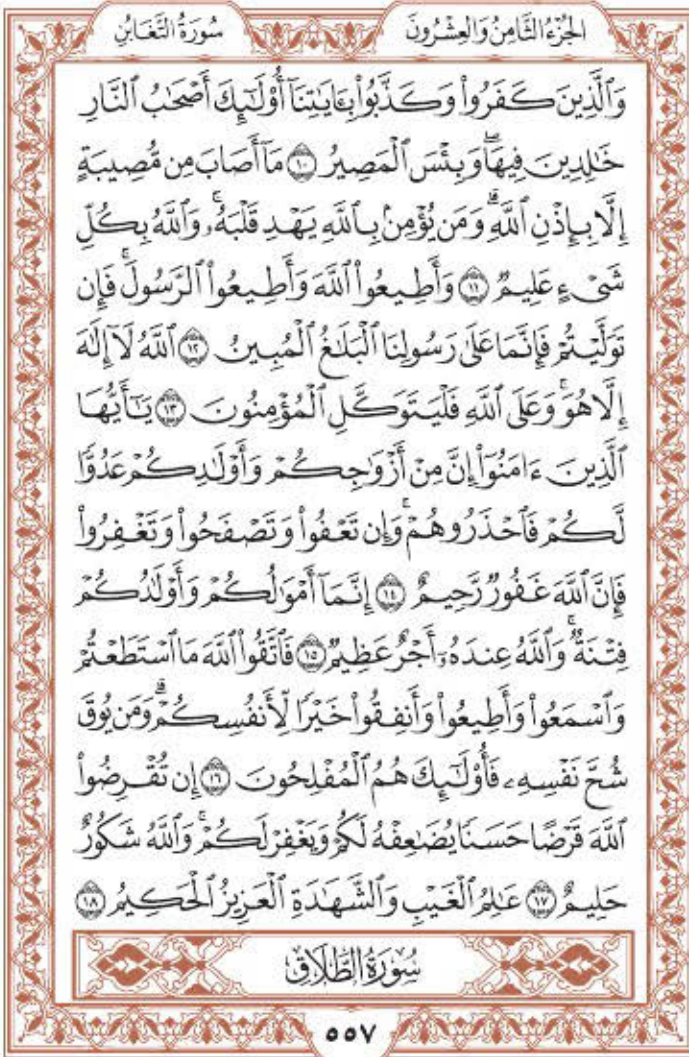 سُورَةُ التَّغَابُنِ
الجُزْءُ الثَّامِنُ وَالعِشْرُونَ
وَٱلَّذِينَ كَفَرُوا۟ وَكَذَّبُوا۟ بِـَٔايَـٰتِنَآ أُو۟لَـٰٓئِكَ أَصْحَـٰبُ ٱلنَّارِ
خَـٰلِدِينَ فِيهَا ۖ وَبِئْسَ ٱلْمَصِيرُ ۝١٠ مَآ أَصَابَ مِن مُّصِيبَةٍ
إِلَّا بِإِذْنِ ٱللَّهِ ۗ وَمَن يُؤْمِنۢ بِٱللَّهِ يَهْدِ قَلْبَهُۥ ۚ وَٱللَّهُ بِكُلِّ
شَىْءٍ عَلِيمٌ ۝١١ وَأَطِيعُوا۟ ٱللَّهَ وَأَطِيعُوا۟ ٱلرَّسُولَ ۚ فَإِن
تَوَلَّيْتُمْ فَإِنَّمَا عَلَىٰ رَسُولِنَا ٱلْبَلَـٰغُ ٱلْمُبِينُ ۝١٢ ٱللَّهُ لَآ إِلَـٰهَ
إِلَّا هُوَ ۚ وَعَلَى ٱللَّهِ فَلْيَتَوَكَّلِ ٱلْمُؤْمِنُونَ ۝١٣ يَـٰٓأَيُّهَا
ٱلَّذِينَ ءَامَنُوٓا۟ إِنَّ مِنْ أَزْوَٰجِكُمْ وَأَوْلَـٰدِكُمْ عَدُوًّا
لَّكُمْ فَٱحْذَرُوهُمْ ۚ وَإِن تَعْفُوا۟ وَتَصْفَحُوا۟ وَتَغْفِرُوا۟
فَإِنَّ ٱللَّهَ غَفُورٌ رَّحِيمٌ ۝١٤ إِنَّمَآ أَمْوَٰلُكُمْ وَأَوْلَـٰدُكُمْ
فِتْنَةٌ ۚ وَٱللَّهُ عِندَهُۥٓ أَجْرٌ عَظِيمٌ ۝١٥ فَٱتَّقُوا۟ ٱللَّهَ مَا ٱسْتَطَعْتُمْ
وَٱسْمَعُوا۟ وَأَطِيعُوا۟ وَأَنفِقُوا۟ خَيْرًا لِّأَنفُسِكُمْ ۗ وَمَن يُوقَ
شُحَّ نَفْسِهِۦ فَأُو۟لَـٰٓئِكَ هُمُ ٱلْمُفْلِحُونَ ۝١٦ إِن تُقْرِضُوا۟
ٱللَّهَ قَرْضًا حَسَنًا يُضَـٰعِفْهُ لَكُمْ وَيَغْفِرْ لَكُمْ ۚ وَٱللَّهُ شَكُورٌ
حَلِيمٌ ۝١٧ عَـٰلِمُ ٱلْغَيْبِ وَٱلشَّهَـٰدَةِ ٱلْعَزِيزُ ٱلْحَكِيمُ ۝١٨
سُورَةُ الطَّلَاقِ
٥٥٧